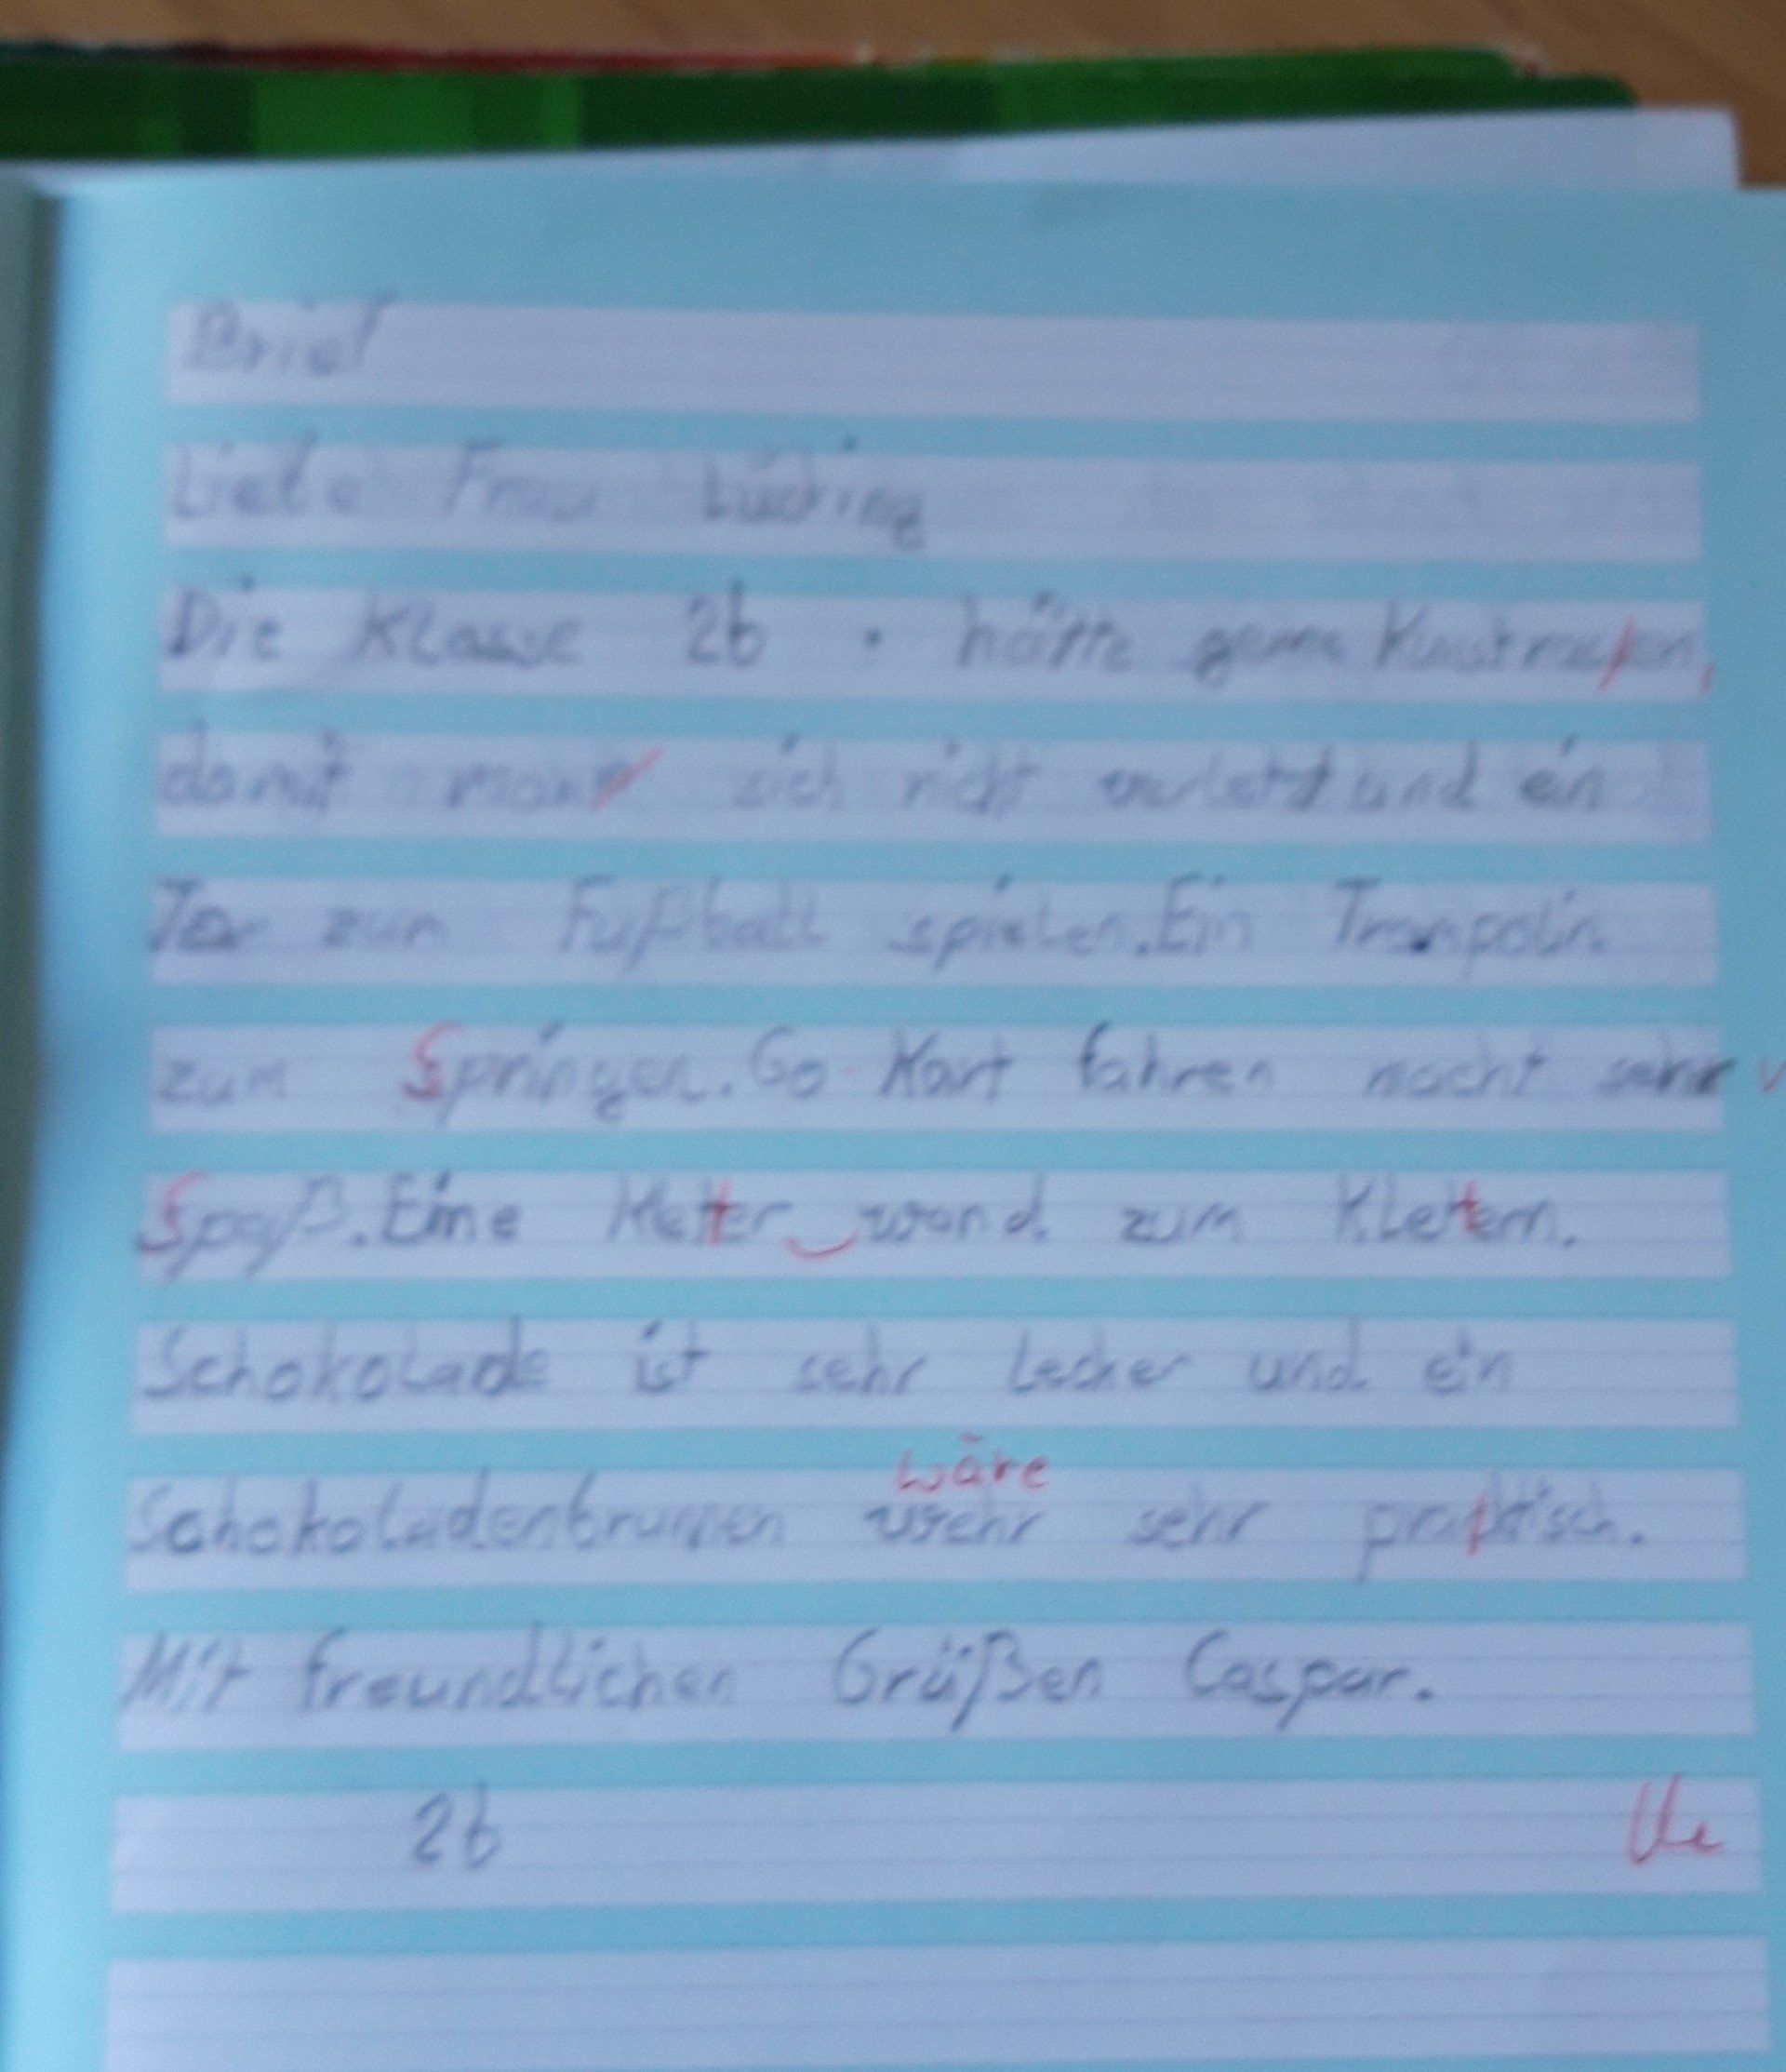 Brief
Liebe Frau Lüding
Die Klasse 2b hätte gerne
damit man sich nicht verletzt und ein
Tor zum Fußball spielen. Ein Trampolin
zum Springen. Go-Kart fahren macht sehr v
Spaß. Eine Kletter wand zum Klettern.
Schokolade ist sehr lecker und ein
wäre
Schokoladenbrunnen wehr sehr praktisch.
Mit freundlichen Grüßen Caspar.
2b